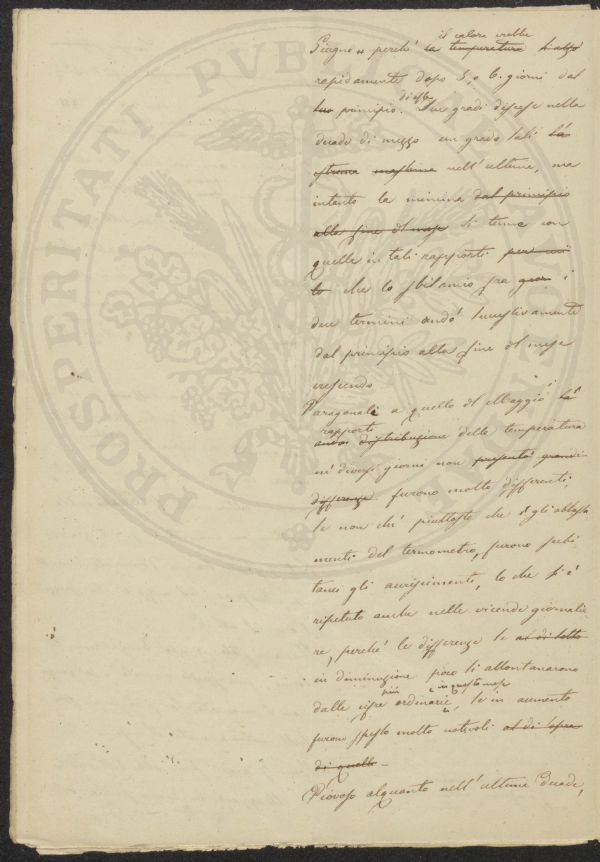 il calore crebbe
Giugno " perchè la temperatura s'alzò
rapidamente dopo 5, o 6. giorni dal
suo principio. Due gradi discese nella
decade di mezzo un grado lati la
estrema massima nell'ultima, ma
intanto la minima dal principio
alla fine del mese si tenne con
quella in tali rapporti per cui
che lo sbilancio fra i
due termini andò successivamente
dal principio alla fine del mese
crescendo
Paragonati a quello del Maggio i
rapporti
distribuzione della temperatura
ne' diversi giorni non presentò grandi
differenze furono molto differenti,
se non chè piuttosto che gli abbassa
menti del termometro, furono subi
tanei gli accrescimenti, lo che si è
ripetuto anche nelle vicende giornalie
re, perchè le differenze se al di sotto
in diminuzione poco si allontanarono
più in questo mese
dalle cifre ordinarie, se in aumento
furono spesso molto notevoli al di sopra
di quelle -
Piovoso alquanto nell'ultima decade,
PROSPERITATI PVBL